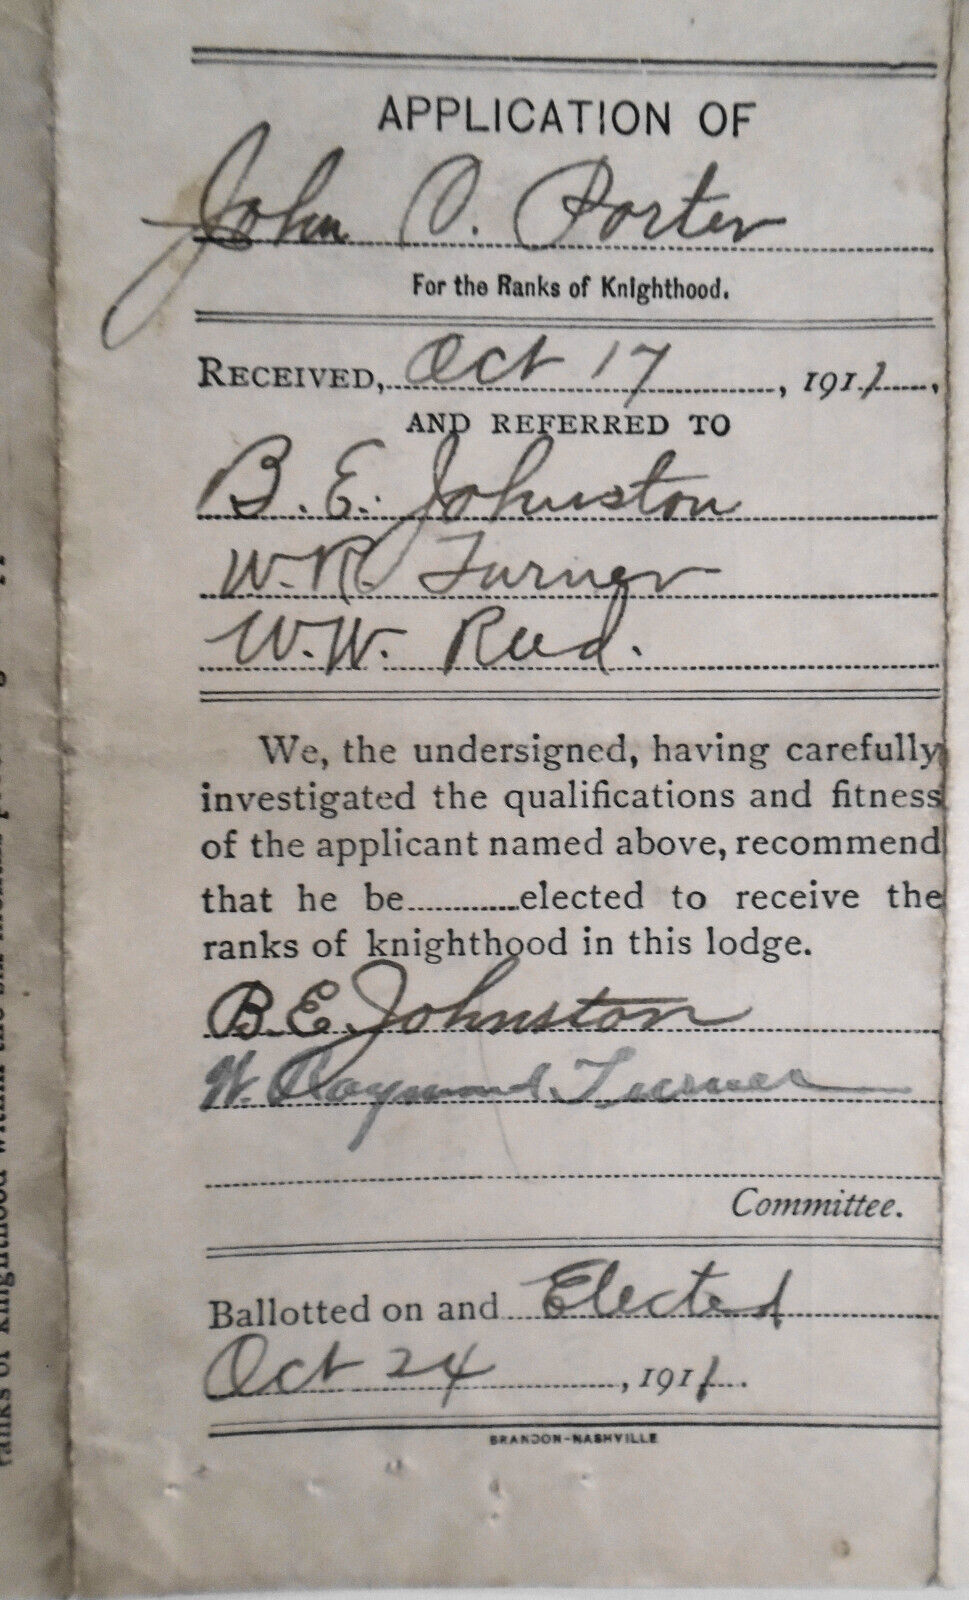 APPLICATION OF
John O. Porter
For the Ranks of Knighthood.
RECEIVED, Oct 17, 1911,
AND REFERRED TO
B. E. Johnston
W. R. Turner
W. W. Reed.
We, the undersigned, having carefully
investigated the qualifications and fitness
of the applicant named above, recommend
that he be............elected to receive the
ranks of knighthood in this lodge.
B. E. Johnston
W. Raymond Turner
Committee.
Ballotted on and Elected
Oct 24, 1911.
BRANDON-NASHVILLE